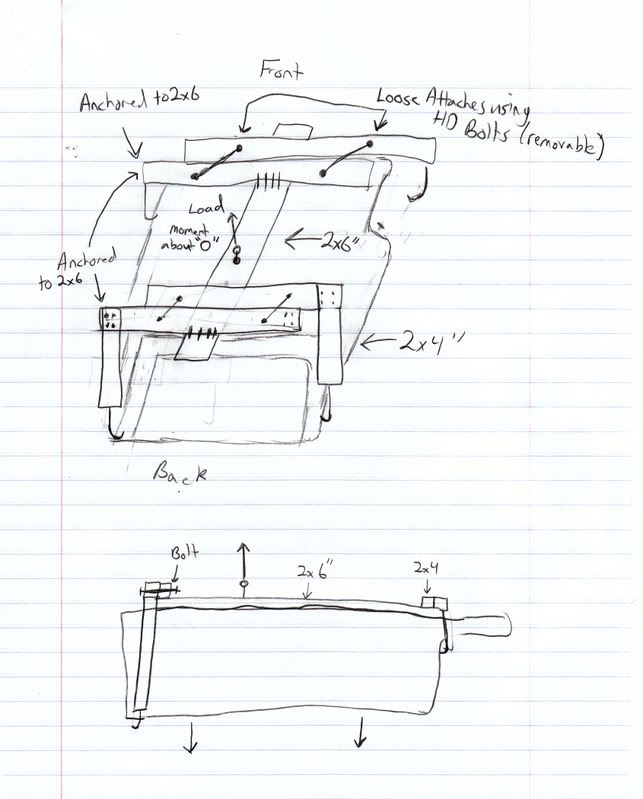 Front
Anchored to 2x6
Loose Attaches using
HD Bolts (removable)
Load
moment
about "O"
2x6"
Anchored
to 2x6
2x4"
Back
Bolt
2x6"
2x4